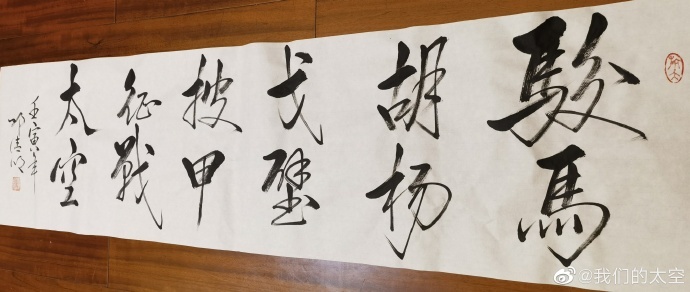 駿馬
胡杨
戈壁
披甲
征戰
太空
壬寅年
邓清明
@我们的太空